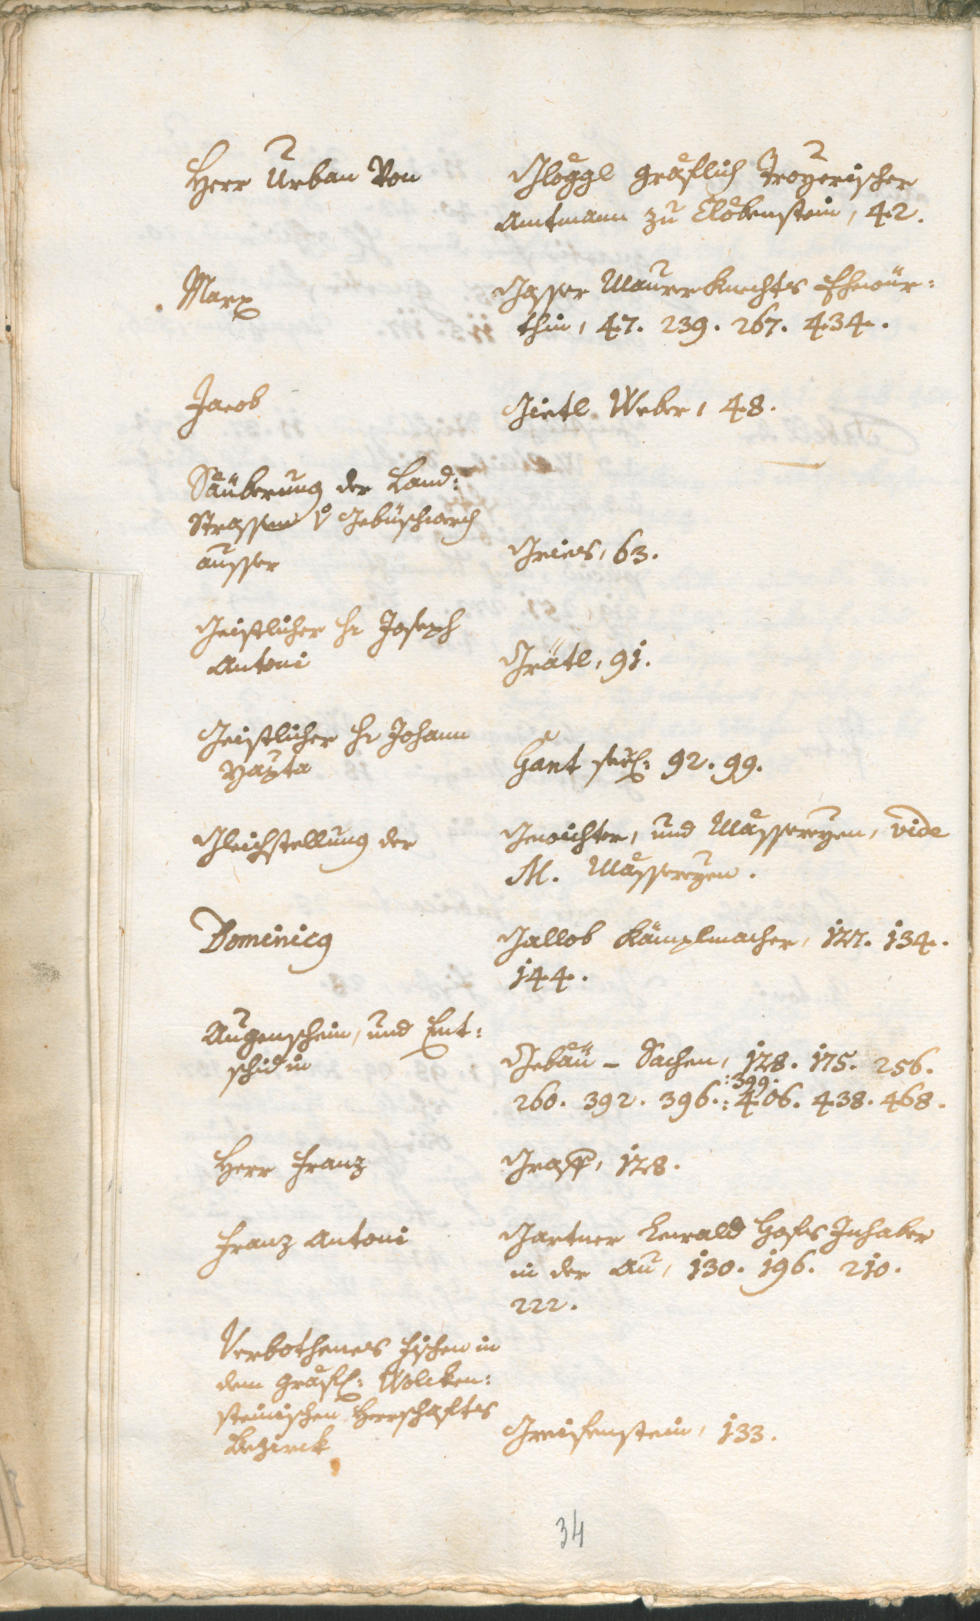 Herr Urban Von
Gloggl gräflich Troyerischer
Amtmann zu Elöbenstein, 42.
Marx
Gasser Maurer Knechts Ehewür-
thin, 47. 239. 267. 434.
Jacob
Gietl Weber, 48.
Säüberung der Land-
Strassen v Gebüschwerch
ausser
Gries, 63.
Geistlicher Hr Joseph
Antoni
Grätl, 91.
Geistlicher Hr Johann
Gant 92. 99.
Gleichstellung der
Gewichter, und Mässereyen, vide
M. Mässereyen.
Dominicq
Gallob Kämplmacher, 127. 134.
144.
Augenschein, und Ent-
schid in
Gebäü-Sachen, 128. 175. 256.
:399.
260. 392. 396.: 406. 438. 468.
Herr Franz
Graff, 128.
Franz Antoni
Gartner Hofs Inhaber
in der Au, 130. 196. 210.
222.
Verbothenes Fischen in
dem gräfl: Wolcken-
steinischen Herrschafts
Bezirck
Greifenstein, 133.
34